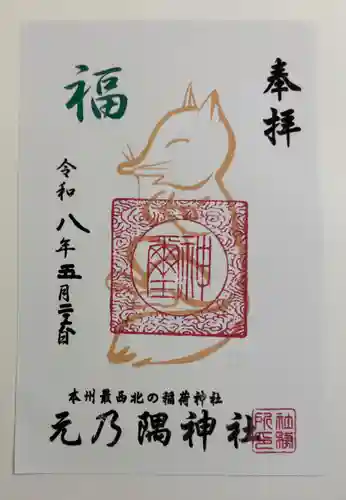 奉拝
福
令和八年五月二六日
神璽
本州最西北の稲荷神社
元乃隅神社
社務所印